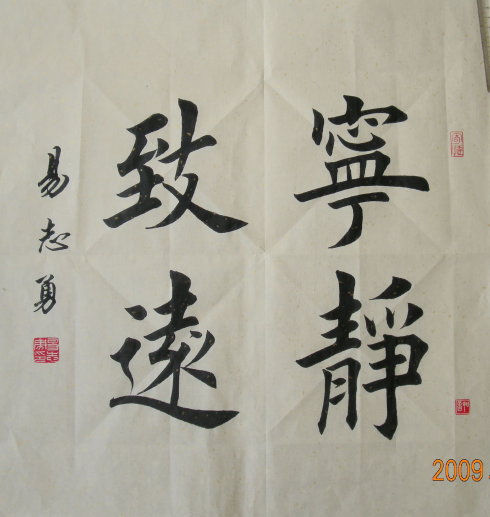 寧靜
致遠
易志勇
2009